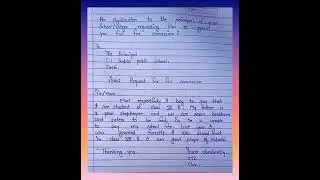 An Application to the principal of your
School/College requesting him to grant
you full fee concession?
To,
The Principal
C.L Gupta public School.
Date.
Sub: Request for full concession
Sir/Mam
Most respectfully I beg to say that
I am student of class VIII B. My father is
a poor shopkeeper and we are seven brothers
and sisters to be fed. So he is unable
to pay my school fee. Last year I
was granted
in class VIII B. I am good player of
Thanking you.
Yours obediently
XYZ
Class.